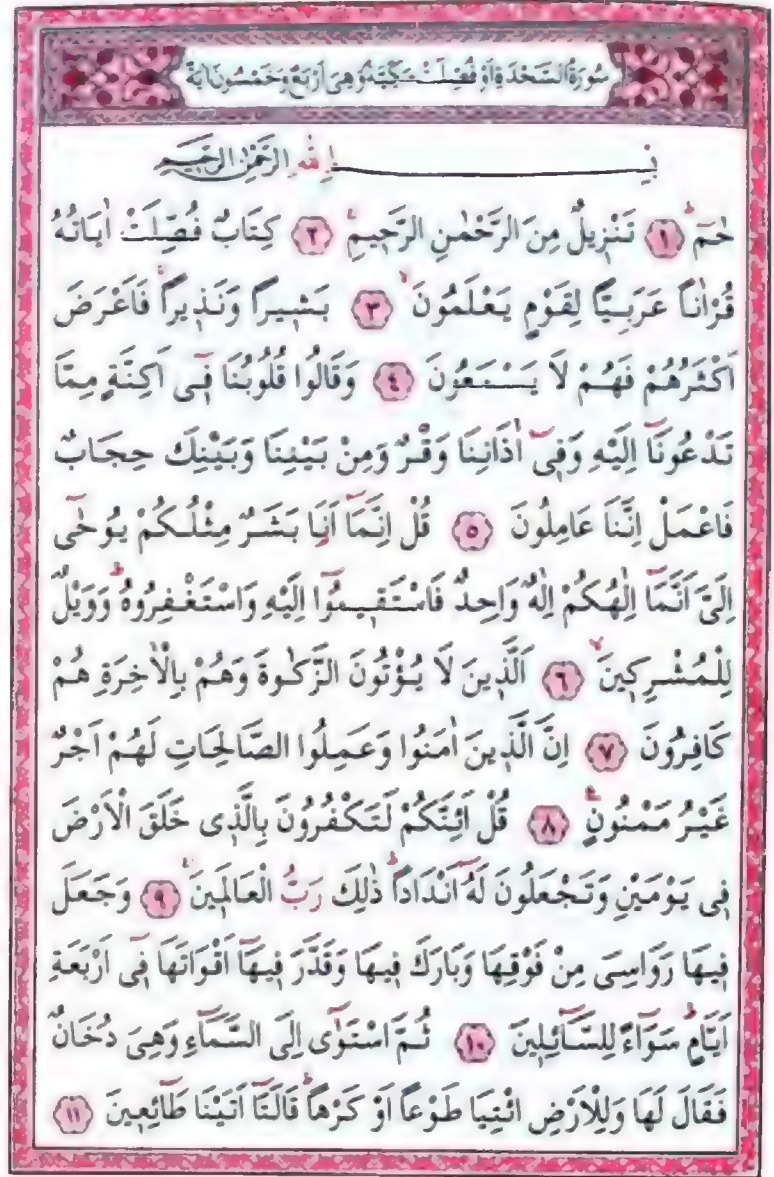 سُورَةُ السَّجْدَةِ اَوْ فُصِّلَتْ مَكِّيَّةٌ وَهِىَ اَرْبَعٌ وَخَمْسُونَ اٰيَةً
بِسْمِ اللّٰهِ الرَّحْمٰنِ الرَّحِيمِ
حٰمٓ ۚ ﴿١﴾ تَنْزِيلٌ مِنَ الرَّحْمٰنِ الرَّحِيمِ ۚ ﴿٢﴾ كِتَابٌ فُصِّلَتْ اٰيَاتُهُ
قُرْاٰناً عَرَبِيًّا لِقَوْمٍ يَعْلَمُونَ ۙ ﴿٣﴾ بَشِيراً وَنَذِيراً ۚ فَاَعْرَضَ
اَكْثَرُهُمْ فَهُمْ لَا يَسْمَعُونَ ﴿٤﴾ وَقَالُوا قُلُوبُنَا فِٓى اَكِنَّةٍ مِمَّا
تَدْعُونَٓا اِلَيْهِ وَفِٓى اٰذَانِنَا وَقْرٌ وَمِنْ بَيْنِنَا وَبَيْنِكَ حِجَابٌ
فَاعْمَلْ اِنَّنَا عَامِلُونَ ﴿٥﴾ قُلْ اِنَّمَٓا اَنَا بَشَرٌ مِثْلُكُمْ يُوحٰٓى
اِلَىَّ اَنَّمَٓا اِلٰهُكُمْ اِلٰهٌ وَاحِدٌ فَاسْتَقِيمُٓوا اِلَيْهِ وَاسْتَغْفِرُوهُ ۜ وَوَيْلٌ
لِلْمُشْرِكِينَ ۙ ﴿٦﴾ اَلَّذِينَ لَا يُؤْتُونَ الزَّكٰوةَ وَهُمْ بِالْاٰخِرَةِ هُمْ
كَافِرُونَ ﴿٧﴾ اِنَّ الَّذِينَ اٰمَنُوا وَعَمِلُوا الصَّالِحَاتِ لَهُمْ اَجْرٌ
غَيْرُ مَمْنُونٍ ۟ ﴿٨﴾ قُلْ اَئِنَّكُمْ لَتَكْفُرُونَ بِالَّذِى خَلَقَ الْاَرْضَ
فِى يَوْمَيْنِ وَتَجْعَلُونَ لَهُٓ اَنْدَاداً ۜ ذٰلِكَ رَبُّ الْعَالَمِينَ ۚ ﴿٩﴾ وَجَعَلَ
فِيهَا رَوَاسِىَ مِنْ فَوْقِهَا وَبَارَكَ فِيهَا وَقَدَّرَ فِيهَٓا اَقْوَاتَهَا فِٓى اَرْبَعَةِ
اَيَّامٍ ۜ سَوَٓاءً لِلسَّٓائِلِينَ ﴿١٠﴾ ثُمَّ اسْتَوٰٓى اِلَى السَّمَٓاءِ وَهِىَ دُخَانٌ
فَقَالَ لَهَا وَلِلْاَرْضِ ائْتِيَا طَوْعاً اَوْ كَرْهاً ۜ قَالَتَٓا اَتَيْنَا طَٓائِعِينَ ﴿١١﴾